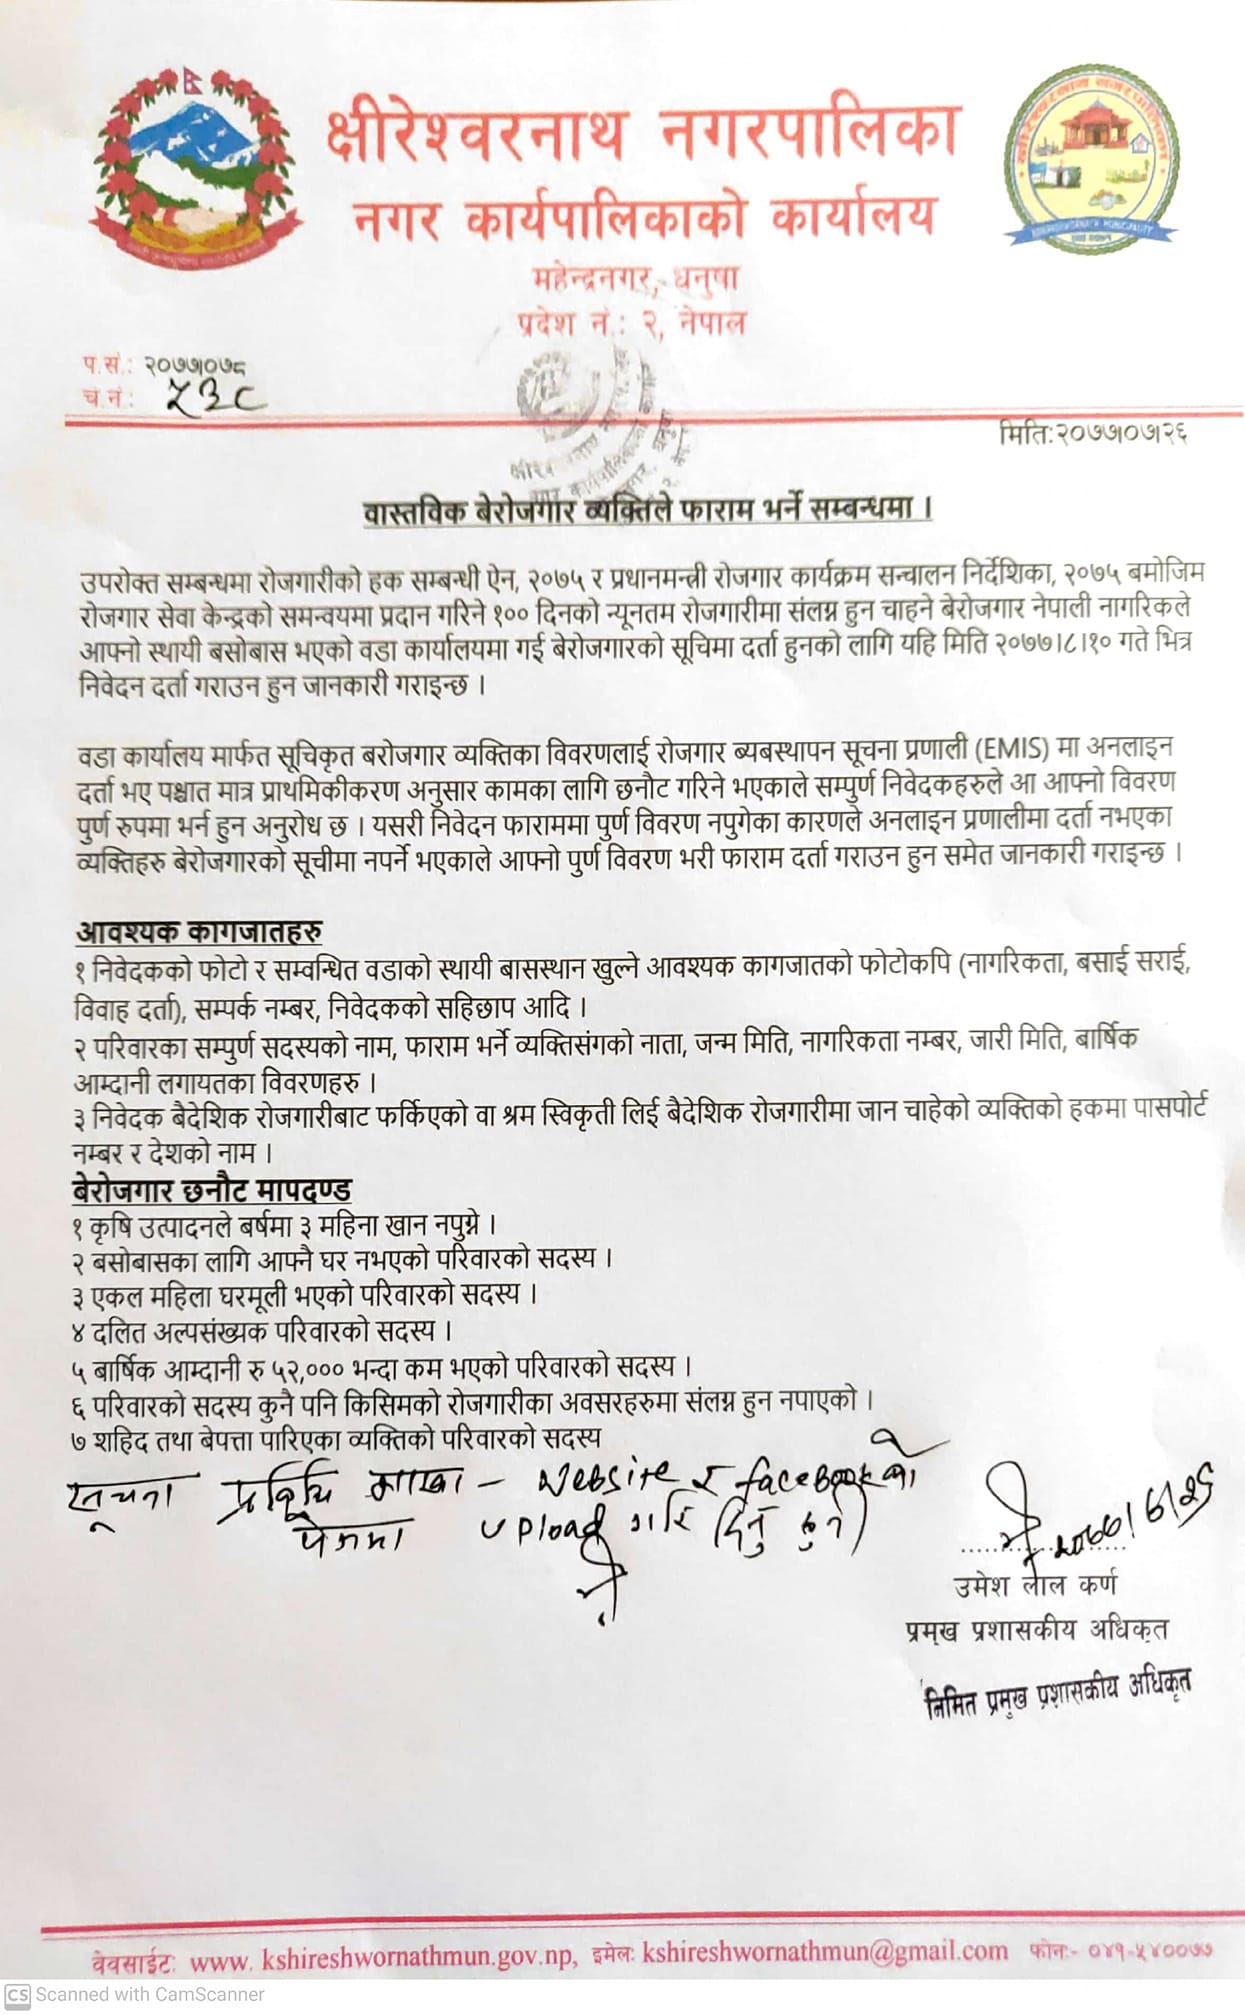 क्षीरेश्वरनाथ नगरपालिका
नगर कार्यपालिकाको कार्यालय
महेन्द्रनगर, धनुषा
प्रदेश नं.: २, नेपाल
प.सं.: २०७७।०७८
च.नं: ५३८
मिति:२०७७।०७।२६
वास्तविक बेरोजगार व्यक्तिले फाराम भर्ने सम्बन्धमा ।
उपरोक्त सम्बन्धमा रोजगारीको हक सम्बन्धी ऐन, २०७५ र प्रधानमन्त्री रोजगार कार्यक्रम सन्चालन निर्देशिका, २०७५ बमोजिम
रोजगार सेवा केन्द्रको समन्वयमा प्रदान गरिने १०० दिनको न्यूनतम रोजगारीमा संलग्न हुन चाहने बेरोजगार नेपाली नागरिकले
आफ्नो स्थायी बसोबास भएको वडा कार्यालयमा गई बेरोजगारको सूचिमा दर्ता हुनको लागि यहि मिति २०७७।८।१० गते भित्र
निवेदन दर्ता गराउन हुन जानकारी गराइन्छ ।
वडा कार्यालय मार्फत सूचिकृत बरोजगार व्यक्तिका विवरणलाई रोजगार ब्यबस्थापन सूचना प्रणाली (EMIS) मा अनलाइन
दर्ता भए पश्चात मात्र प्राथमिकीकरण अनुसार कामका लागि छनौट गरिने भएकाले सम्पुर्ण निवेदकहरुले आ आफ्नो विवरण
पुर्ण रुपमा भर्न हुन अनुरोध छ । यसरी निवेदन फाराममा पुर्ण विवरण नपुगेका कारणले अनलाइन प्रणालीमा दर्ता नभएका
व्यक्तिहरु बेरोजगारको सूचीमा नपर्ने भएकाले आफ्नो पुर्ण विवरण भरी फाराम दर्ता गराउन हुन समेत जानकारी गराइन्छ ।
आवश्यक कागजातहरु
१ निवेदकको फोटो र सम्वन्धित वडाको स्थायी बासस्थान खुल्ने आवश्यक कागजातको फोटोकपि (नागरिकता, बसाई सराई,
विवाह दर्ता), सम्पर्क नम्बर, निवेदकको सहिछाप आदि ।
२ परिवारका सम्पुर्ण सदस्यको नाम, फाराम भर्ने व्यक्तिसंगको नाता, जन्म मिति, नागरिकता नम्बर, जारी मिति, बार्षिक
आम्दानी लगायतका विवरणहरु ।
३ निवेदक बैदेशिक रोजगारीबाट फर्किएको वा श्रम स्विकृती लिई बैदेशिक रोजगारीमा जान चाहेको व्यक्तिको हकमा पासपोर्ट
नम्बर र देशको नाम ।
बेरोजगार छनौट मापदण्ड
१ कृषि उत्पादनले बर्षमा ३ महिना खान नपुग्ने ।
२ बसोबासका लागि आफ्नै घर नभएको परिवारको सदस्य ।
३ एकल महिला घरमूली भएको परिवारको सदस्य ।
४ दलित अल्पसंख्यक परिवारको सदस्य ।
५ बार्षिक आम्दानी रु ५२,००० भन्दा कम भएको परिवारको सदस्य ।
६ परिवारको सदस्य कुनै पनि किसिमको रोजगारीका अवसरहरुमा संलग्न हुन नपाएको ।
७ शहिद तथा बेपत्ता पारिएका व्यक्तिको परिवारको सदस्य
सूचना प्रविधि शाखा - Website र facebookको
पेजमा upload गरि दिनु हुने
२०७७।७।२६
उमेश लाल कर्ण
प्रमुख प्रशासकीय अधिकृत
निमित प्रमुख प्रशासकीय अधिकृत
वेवसाईट: www. kshireshwornathmun.gov.np, इमेल: kshireshwornathmun@gmail.com फोन:- ०४१-५४००७७
CS Scanned with CamScanner